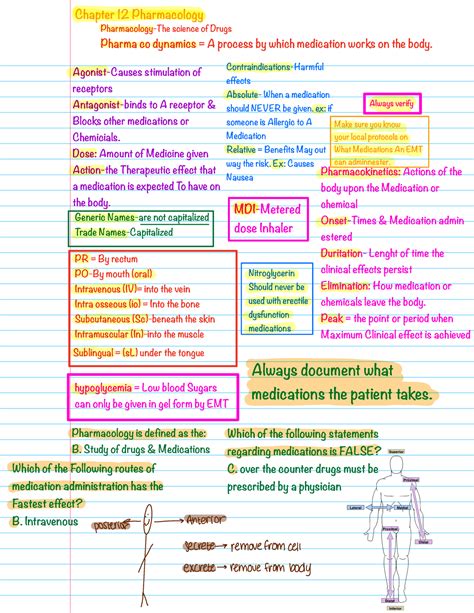 Chapter 12 Pharmacology
Pharmacology-The science of Drugs
Pharma co dynamics = A process by which medication works on the body.
Agonist-Causes stimulation of
receptors
Antagonist-binds to A receptor &
Blocks other medications or
Chemicials.
Dose: Amount of Medicine given
Action-the Therapeutic effect that
a medication is expected To have on
the body.
Generic Names-are not capitalized
Trade Names-Capitalized
PR = By rectum
PO-By mouth (oral)
Intravenous (IV)= into the vein
Intra osseous (io)= Into the bone
Subcutaneous (Sc)-beneath the skin
Intramuscular (In)-into the muscle
Sublingual = (sL) under the tongue
hypoglycemia = Low blood Sugars
can only be given in gel form by EMT
Contraindications-Harmful
effects
Absolute- When a medication
should NEVER be given. ex: if
someone is Allergic to A
Medication
Relative = Benefits May out
way the risk. Ex: Causes
Nausea
MDI-Metered
dose Inhaler
Nitroglycerin
Should never be
used with erectile
dysfunction
medications
Always verify
Make sure you know
your local protocols on
What Medications An EMT
can adminnester.
Pharmacokinetics: Actions of the
body upon the Medication or
chemical
Onset-Times & Medication admin
estered
Duritation- Lenght of time the
clinical effects persist
Elimination: How medication or
chemicals leave the body.
Peak = the point or period when
Maximum Clinical effect is achieved
Always document what
medications the patient takes.
Pharmacology is defined as the:
B. Study of drugs & Medications
Which of the Following routes of
medication administration has the
Fastest effect?
B. Intravenous
Which of the following statements
regarding medications is FALSE?
C. over the counter drugs must be
prescribed by a physician
posterior
Anterior
secrete → remove from cell
excrete → remove from body
Superior
Proximal
Lateral
Medial
Proximal
Distal
Distal
Inferior